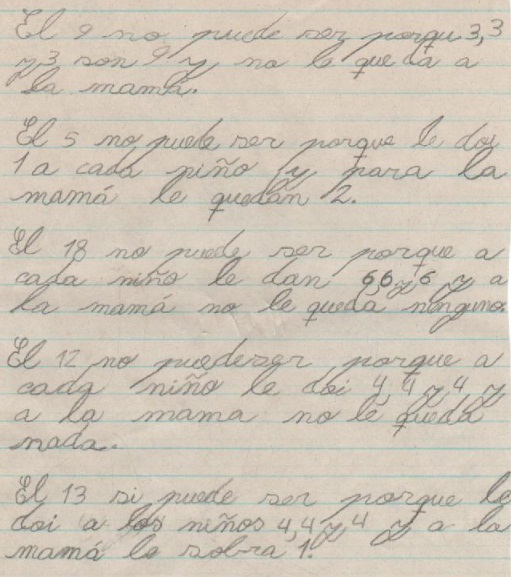 El 9 no puede ser porqu 3,3
y 3 son 9 y no le queda a
la mamá.
El 5 no puede ser porque le doi
1 a cada niño y para la
mamá le quedan 2.
El 18 no puede ser porque a
cada niño le dan 6,6 y 6 y a
la mamá no le queda ninguno.
El 12 no puedeser porque a
cada niño le doi 4,4 y 4 y
a la mama no le queda
nada.
El 13 si puede ser porque le
doi a los niños 4,4 y 4 y a la
mamá le sobra 1.